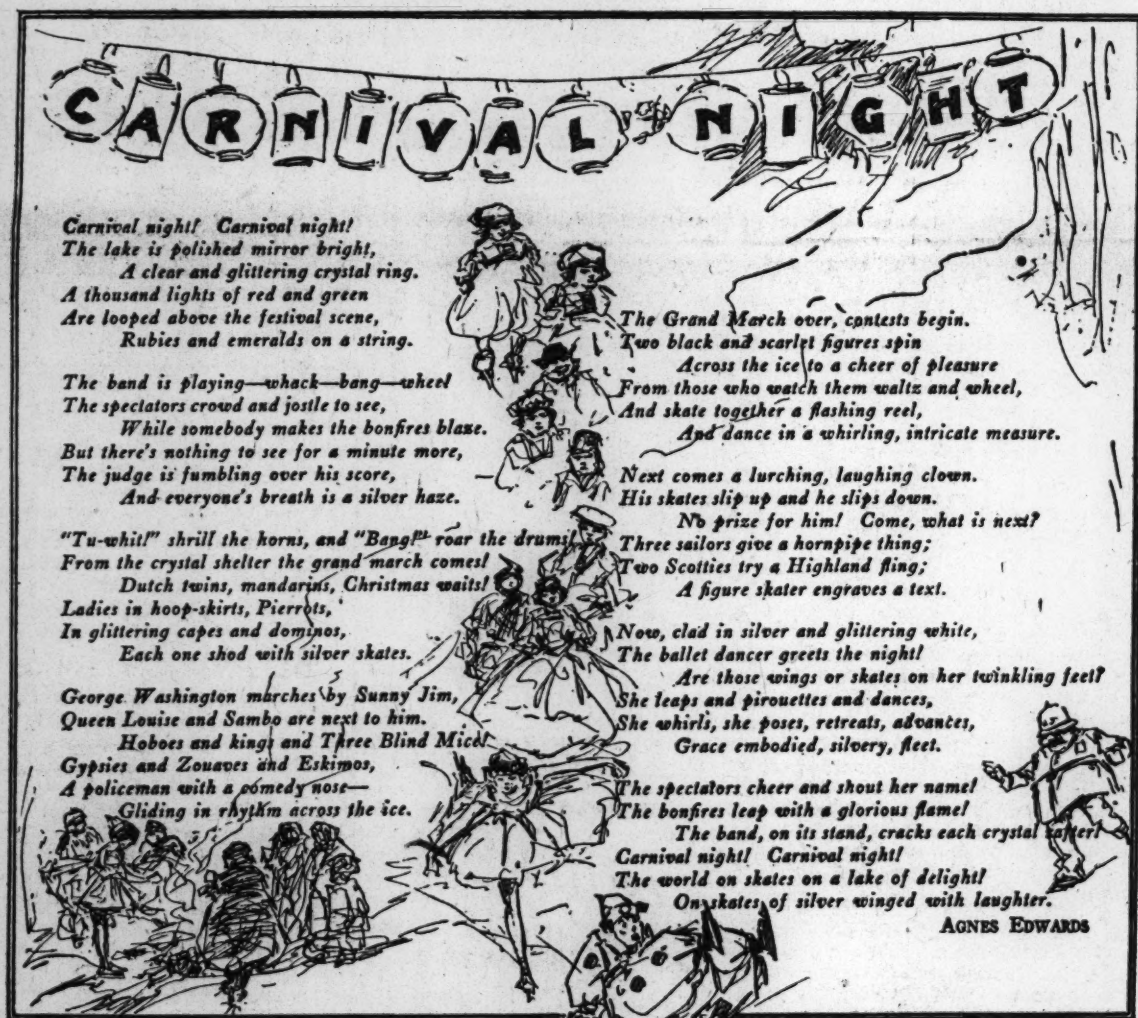 CARNIVAL NIGHT
Carnival night! Carnival night!
The lake is polished mirror bright,
A clear and glittering crystal ring.
A thousand lights of red and green
Are looped above the festival scene,
Rubies and emeralds on a string.
The band is playing—whack—bang—whee!
The spectators crowd and jostle to see,
While somebody makes the bonfires blaze.
But there's nothing to see for a minute more,
The judge is fumbling over his score,
And everyone's breath is a silver haze.
"Tu-whit!" shrill the horns, and "Bang!" roar the drums!
From the crystal shelter the grand march comes!
Dutch twins, mandarins, Christmas waits!
Ladies in hoop-skirts, Pierrots,
In glittering capes and dominos,
Each one shod with silver skates.
George Washington marches by Sunny Jim,
Queen Louise and Sambo are next to him.
Hoboes and kings and Three Blind Mice!
Gypsies and Zouaves and Eskimos,
A policeman with a comedy nose—
Gliding in rhythm across the ice.
The Grand March over, contests begin.
Two black and scarlet figures spin
Across the ice to a cheer of pleasure
From those who watch them waltz and wheel,
And skate together a flashing reel,
And dance in a whirling, intricate measure.
Next comes a lurching, laughing clown.
His skates slip up and he slips down.
No prize for him! Come, what is next?
Three sailors give a hornpipe thing;
Two Scotties try a Highland fling;
A figure skater engraves a text.
Now, clad in silver and glittering white,
The ballet dancer greets the night!
Are those wings or skates on her twinkling feet?
She leaps and pirouettes and dances,
She whirls, she poses, retreats, advances,
Grace embodied, silvery, fleet.
The spectators cheer and shout her name!
The bonfires leap with a glorious flame!
The band, on its stand, cracks each crystal rafter!
Carnival night! Carnival night!
The world on skates on a lake of delight!
On skates of silver winged with laughter.
AGNES EDWARDS